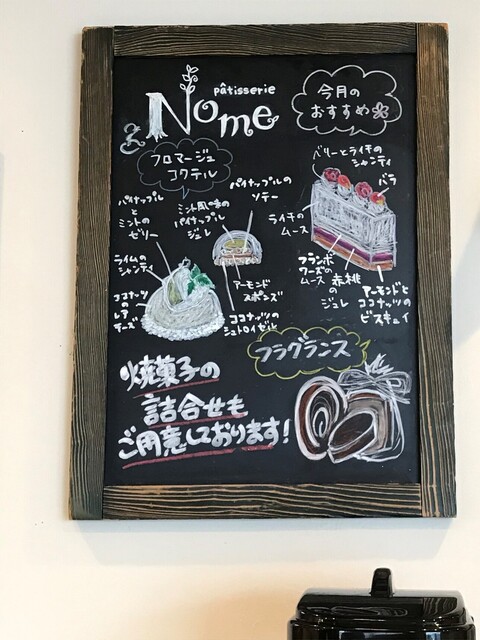 pâtisserie
Nome
今月の
おすすめ
フロマージュ
コクテル
パイナップル
と
ミントの
ゼリー
ミント風味の
パイナップル
ジュレ
パイナップルの
ソテー
ライムの
シャンティ
ココナッツの
レア
チーズ
アーモンド
スポンジ
ココナッツの
シュトロイゼル
ベリーとライチの
シャンティ
バラ
ライチの
ムース
フランボ
ワーズの
ムース
赤桃
の
ジュレ
アーモンドと
ココナッツの
ビスキュイ
フラグランス
焼菓子の
詰合せも
ご用意しております!